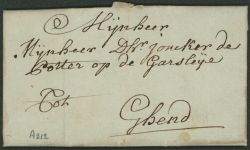 Mijnheer
Mijnheer Dhr. joncker de
Potter op de Garslije
Tot
Ghend
A212